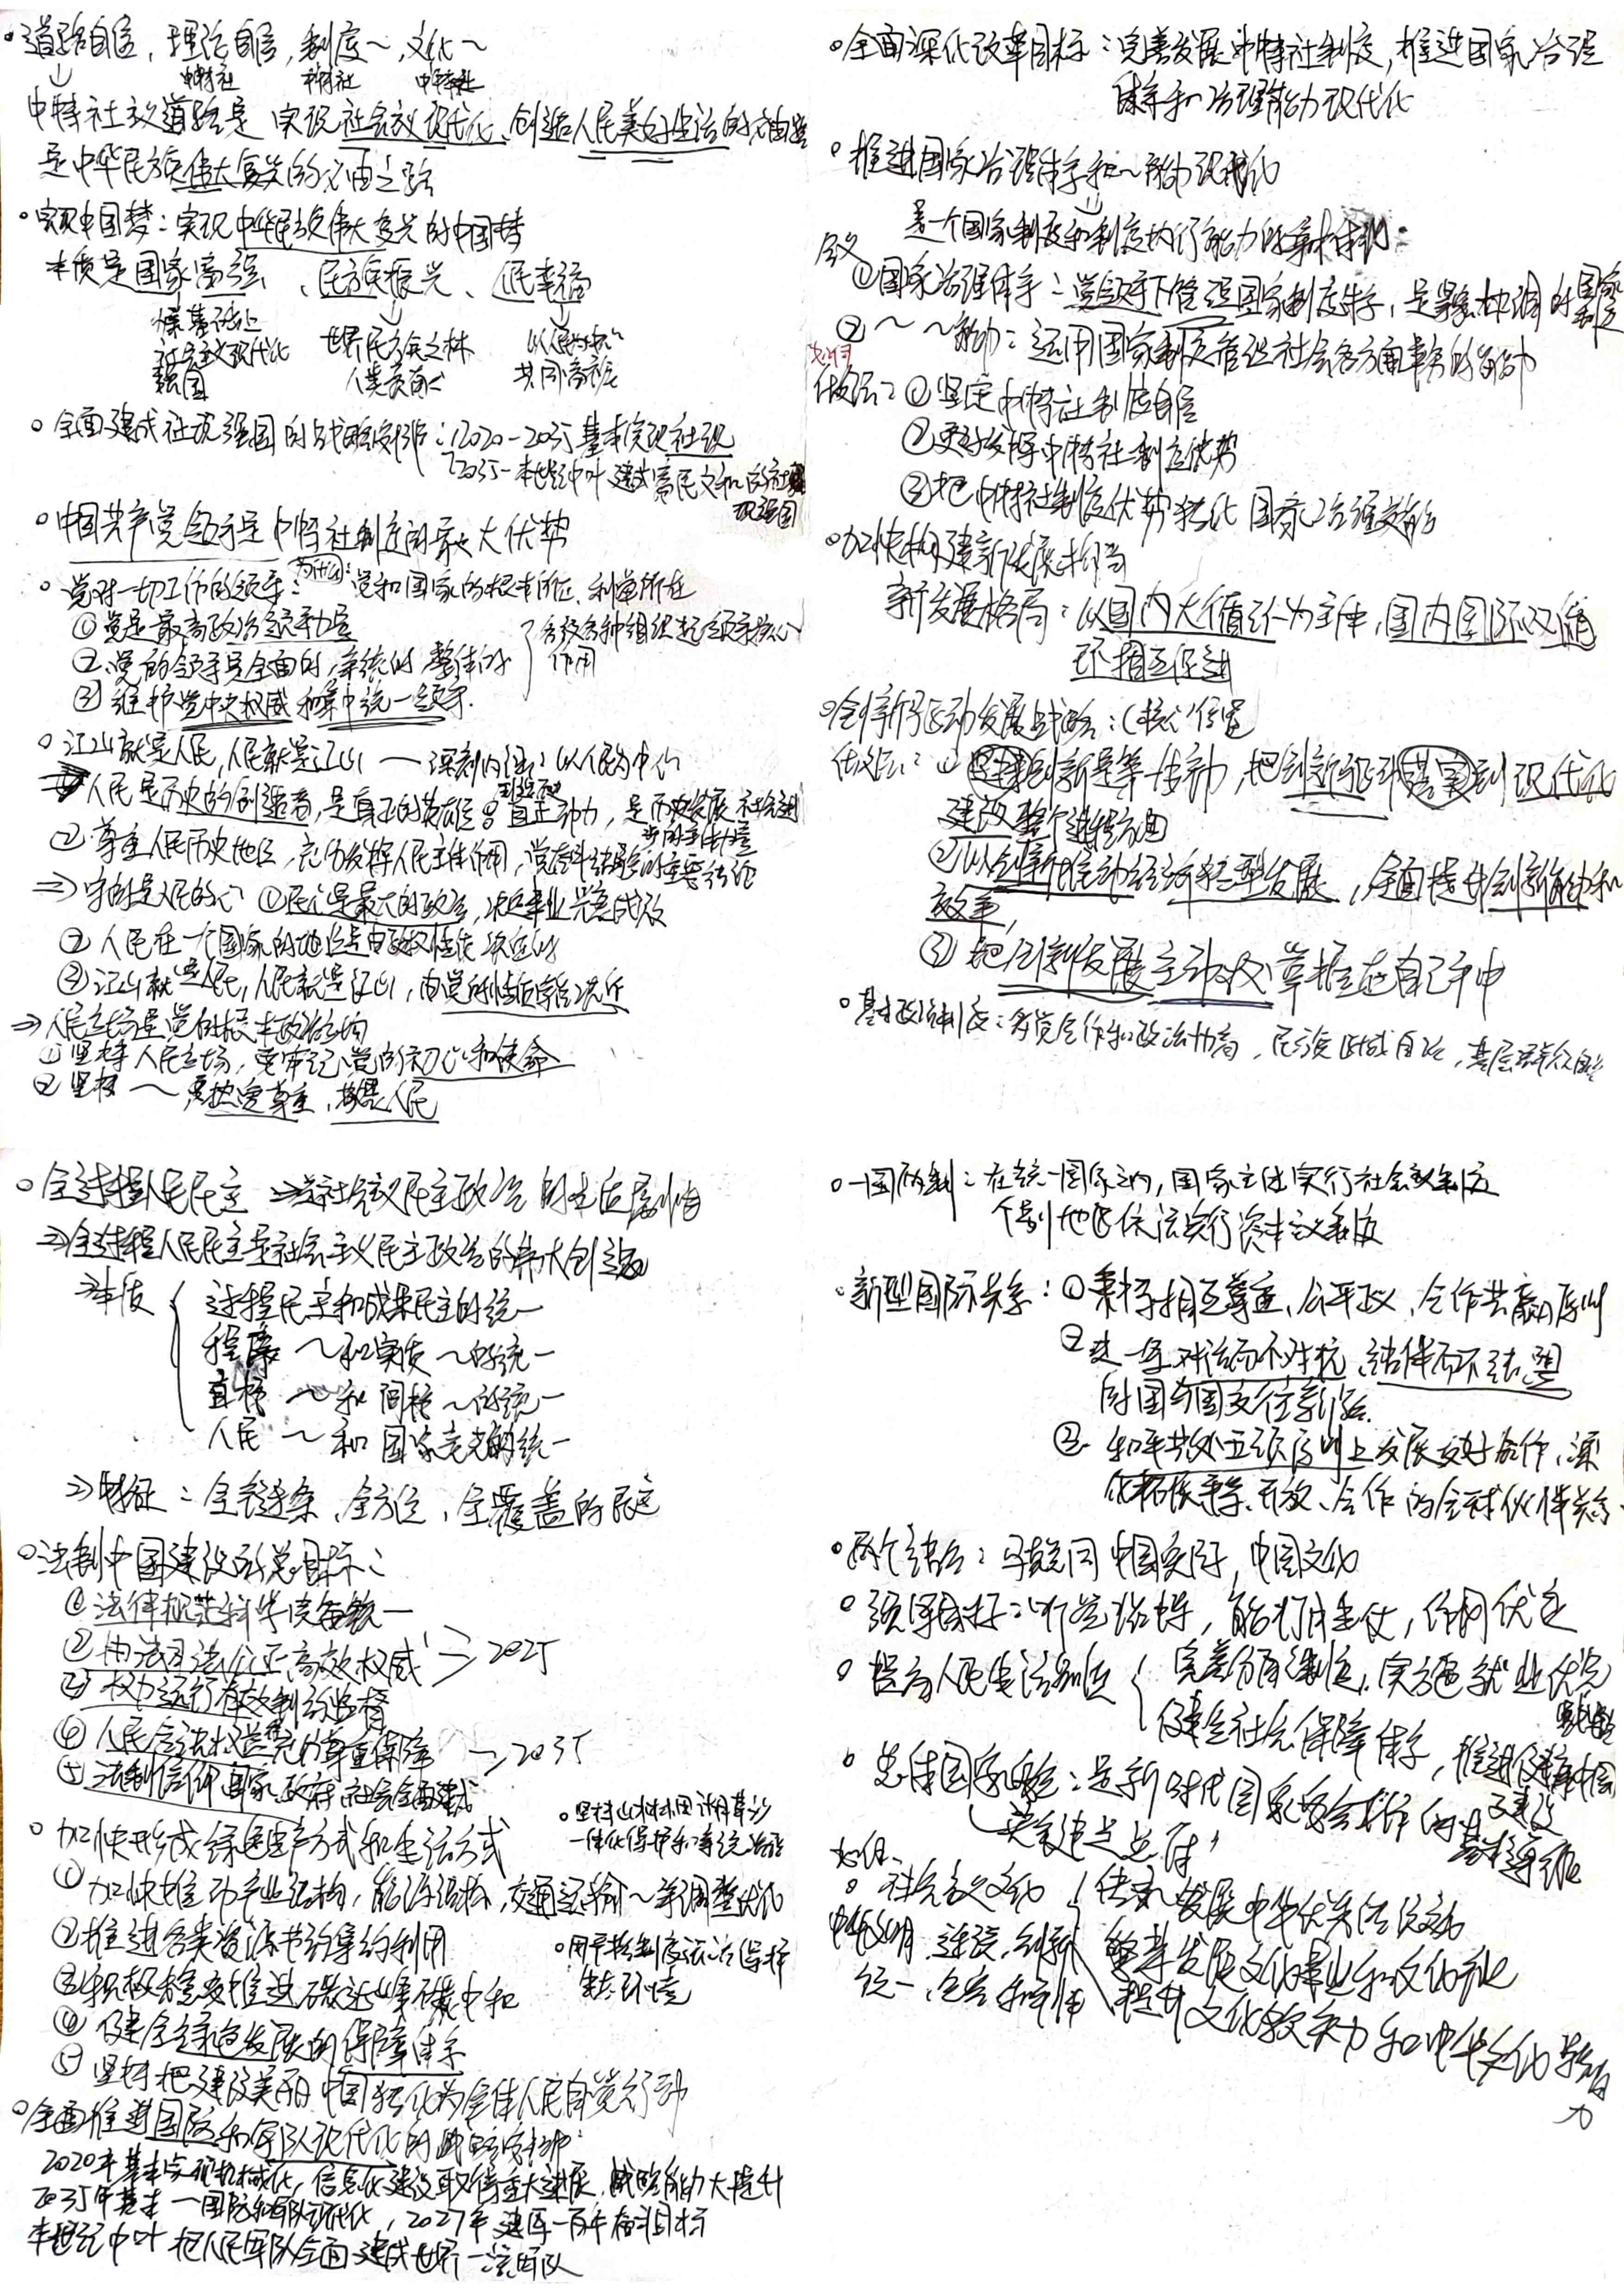 道路自信，理论自信，制度～，文化～
中特社 中特社 中特社
中特社义道路是 实现社会主义现代化、创造人民美好生活的必由路
是中华民族伟大复兴的必由之路
实现中国梦：实现中华民族伟大复兴的中国梦
本质是国家富强、民族振兴、人民幸福
社会主义现代化 世界民族之林 以人民为中心
强国 人类贡献 共同富裕
全面建成社现强国的战略安排：2020-2035基本实现社现
2035-本世纪中叶 建成富民文和 的社
现强国
中国共产党领导是中特社制度的最大优势
党对一切工作的领导：为什么：党和国家的根本所在、利益所在
①党是最高政治领导力量
②党的领导是全面的，系统的 整体的
各级各种组织起领导核心
作用
③维护党中央权威和集中统一领导.
江山就是人民，人民就是江山 — 深刻内涵：以人民为中心
人民是历史的创造者，是真正的英雄 是真正动力，是历史发展 社会进
步的主体力量
②尊重人民历史地位，充分发挥人民主体作用，党 的重要结论
⇒守的是人民的心 ①民心是最大的政治，决定事业兴衰成败
②人民在一个国家的地位是由政权性质决定的
③江山就是人民，人民就是江山，由党的性质宗旨决定
⇒人民立场是党的根本政治立场
①坚持人民立场，要牢记党的初心和使命
②坚持～要热爱尊重、敬畏人民
全面深化改革目标：完善发展中特社制度，推进国家治理
体系和治理能力现代化
推进国家治理体系和～能力现代化
是一个国家制度和制度执行能力的集中体现.
含义
①国家治理体系：党领导下管理国家制度体系，是紧密协调的国家
制度
②～～能力：运用国家制度管理社会各方面事务的能力
做法：①坚定中特社制度自信
②更好发挥中特社制度优势
③把中特社制度优势转化国家治理效能
加快构建新发展格局
新发展格局：以国内大循环为主体，国内国际双循
环相互促进
创新驱动发展战略：(核心位置
做法：①坚持创新是第一动力，把创新驱动贯穿到现代化
建设整个进程方面
②以创新推动经济转型发展，全面提升创新能力和
效率，
③把创新发展主动权掌握在自己手中
基本政治制度：多党合作和政治协商，民族区域自治，基层群众自治
全过程人民民主 ⇒是社会主义民主政治的本质属性
⇒全过程人民民主是社会主义民主政治的伟大创造
⇒本质
过程民主和成果民主的统一
程序～和实质～的统一
直接～和间接～的统一
人民～和国家意志的统一
⇒特征：全链条、全方位、全覆盖的民主
法制中国建设的总目标：
①法律规范科学完备统一
②执法司法公正高效权威 ⇒2025
③权力运行有效制约监督
④人民合法权益充分尊重保障 ⇒2035
⑤法制信仰国家、政府、社会全面建成
加快形成绿色生产方式和生活方式
①加快推动产业结构，能源结构，交通运输～等调整优化
②推进各类资源节约集约利用
③积极稳妥推进碳达峰碳中和
④健全绿色发展的保障体系
⑤坚持把建设美丽中国转化为全体人民自觉行动
坚持山水林田湖草沙
一体化保护和系统治理
用严格制度法治保护
生态环境
全面推进国防和军队现代化的战略安排：
2020年基本实现机械化，信息化建设取得重大进展，战略能力大提升
2035年基本一国防和军队现代化，2027年建军一百年奋斗目标
本世纪中叶把人民军队全面建成世界一流军队
一国两制：在统一国家之内，国家主体实行社会主义制度
个别地区依法实行资本主义制度
新型国际关系：①秉持相互尊重、公平正义、合作共赢原则
②走一条对话而不对抗、结伴而不结盟
的国与国交往新路.
③和平共处五项原则上发展友好合作，深
化拓展平等、开放、合作的全球伙伴关系.
两个结合：马克思同中国实际，中国文化
强军目标：听党指挥，能打胜仗，作风优良
提高人民生活品质
完善分配制度，实施就业优先
战略
健全社会保障体系，推进健康中国
建设
总体国家安全观：是新时代国家安全工作的
基本遵循
关键是总体
中华文明 连续、创新
统一、包容和平性
传承发展中华优秀传统文化
繁荣发展文化事业和文化产业
提升文化软实力和中华文化影响
力